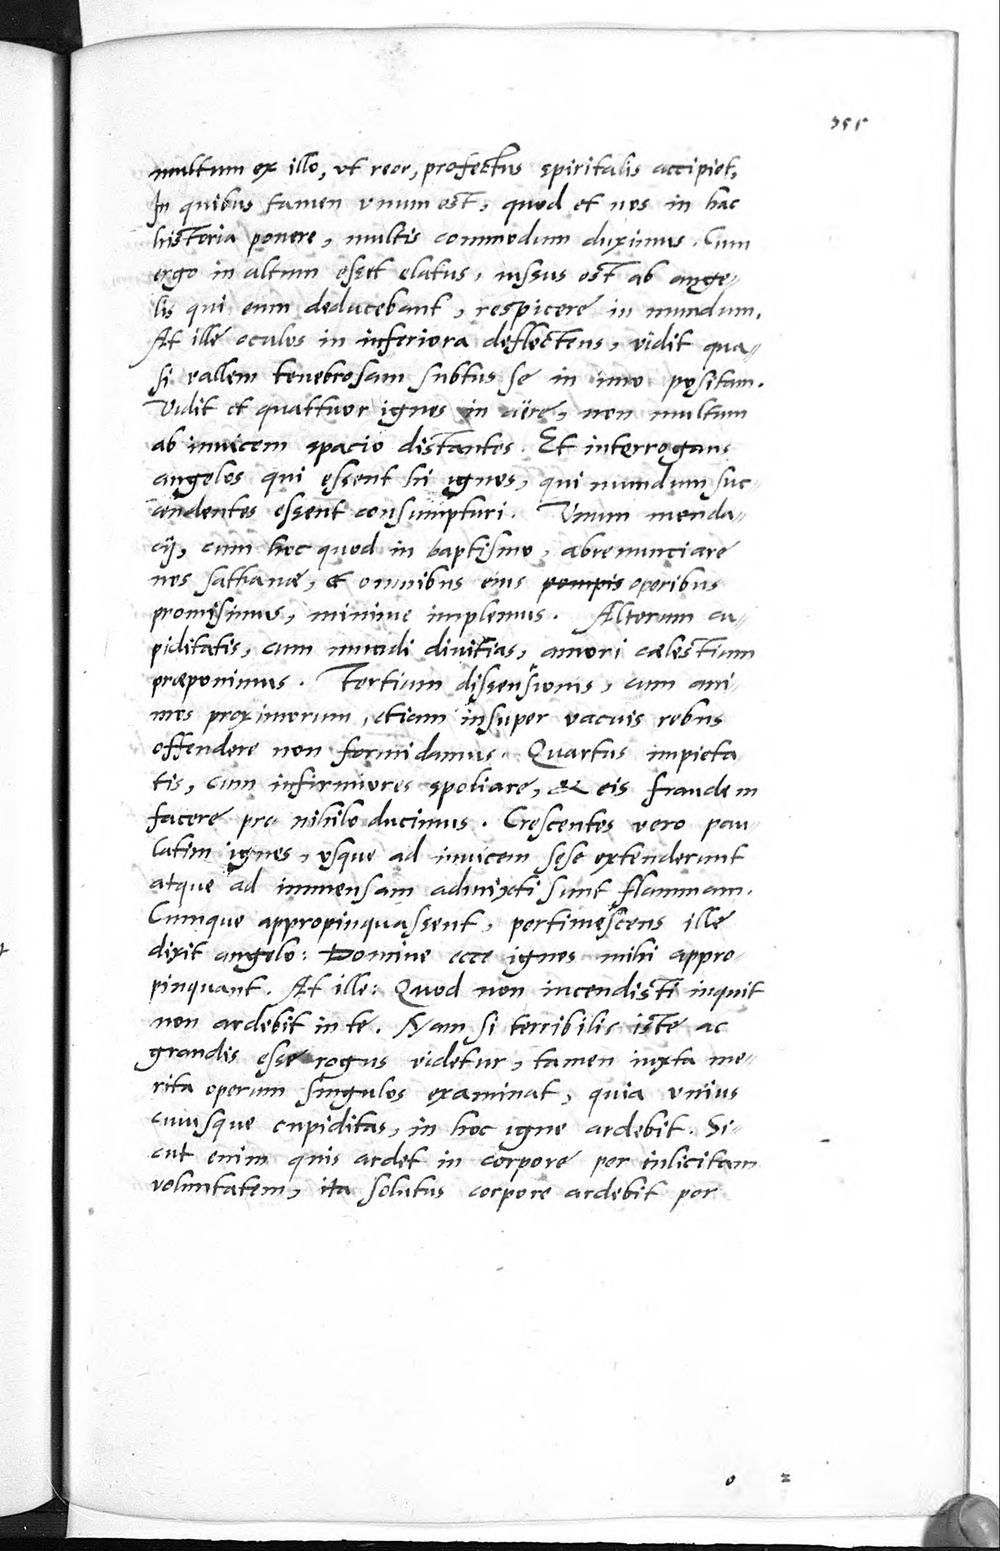 255
multum ex illo, vt reor, profectus spiritalis accipiet,
In quibus tamen vnum est, quod et nos in hac
historia ponere, multis commodum duximus. Cum
ergo in altum esset elatus, iussus est ab ange=
lis qui eum deducebant, respicere in mundum.
At ille oculos in inferiora deflectens, vidit qua=
si vallem tenebrosam subtus se in imo positam.
Vidit et quattuor ignes in aëre, non multum
ab inuicem spacio distantes. Et interrogans
angelos qui essent hi ignes, qui mundum suc=
cendentes essent consumpturi. Vnum menda=
cij, cum hoc quod in baptismo, abrenunciare
nos sathanæ, & omnibus eius pompis operibus
promisimus, minime implemus. Alterum cu=
piditatis, cum mundi diuitias, amori cælestium
præponimus. Tertium dissensionis, cum ani=
mos proximorum, etiam insuper vacuis rebus
offendere non formidamus. Quartus impieta
tis, cum infirmiores spoliare, & eis fraudem
facere pro nihilo ducimus. Crescentes vero pau=
latim ignes, vsque ad inuicem sese extenderunt
atque ad immensam admixti sunt flammam.
Cumque appropinquassent, pertimescens ille
dixit angelo: Domine ecce ignes mihi appro=
pinquant. At ille: Quod non incendisti inquit
non ardebit in te. Nam si terribilis iste ac
grandis esse rogus videtur, tamen iuxta me=
rita operum singulos examinat, quia vnius
cuiusque cupiditas, in hoc igne ardebit. Si=
cut enim quis ardet in corpore per inlicitam
voluntatem, ita solutus corpore ardebit per
o 2